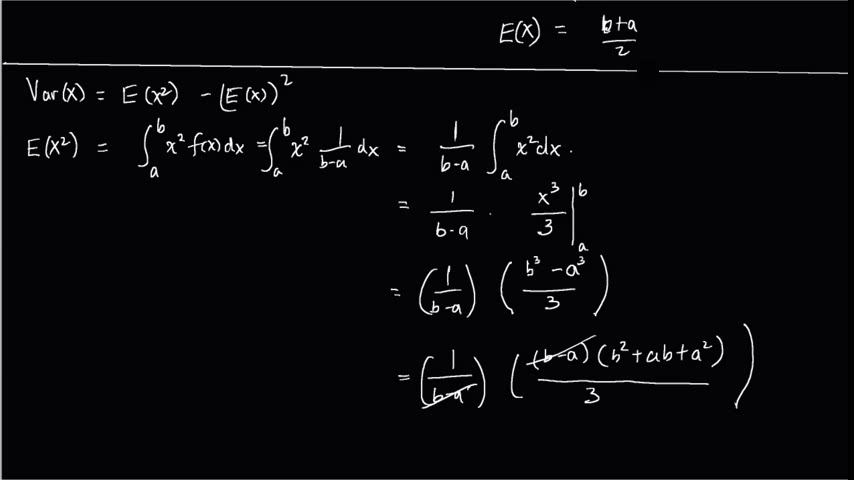 E(X) = b+a/2
Var(x) = E(x²) - (E(x))²
E(X²) = ∫ₐᵇ x² f(x) dx = ∫ₐᵇ x² 1/b-a dx = 1/b-a ∫ₐᵇ x² dx.
= 1/b-a · x³/3 |ₐᵇ
= (1/b-a) (b³-a³/3)
= (1/b-a) ((b-a)(b²+ab+a²)/3)